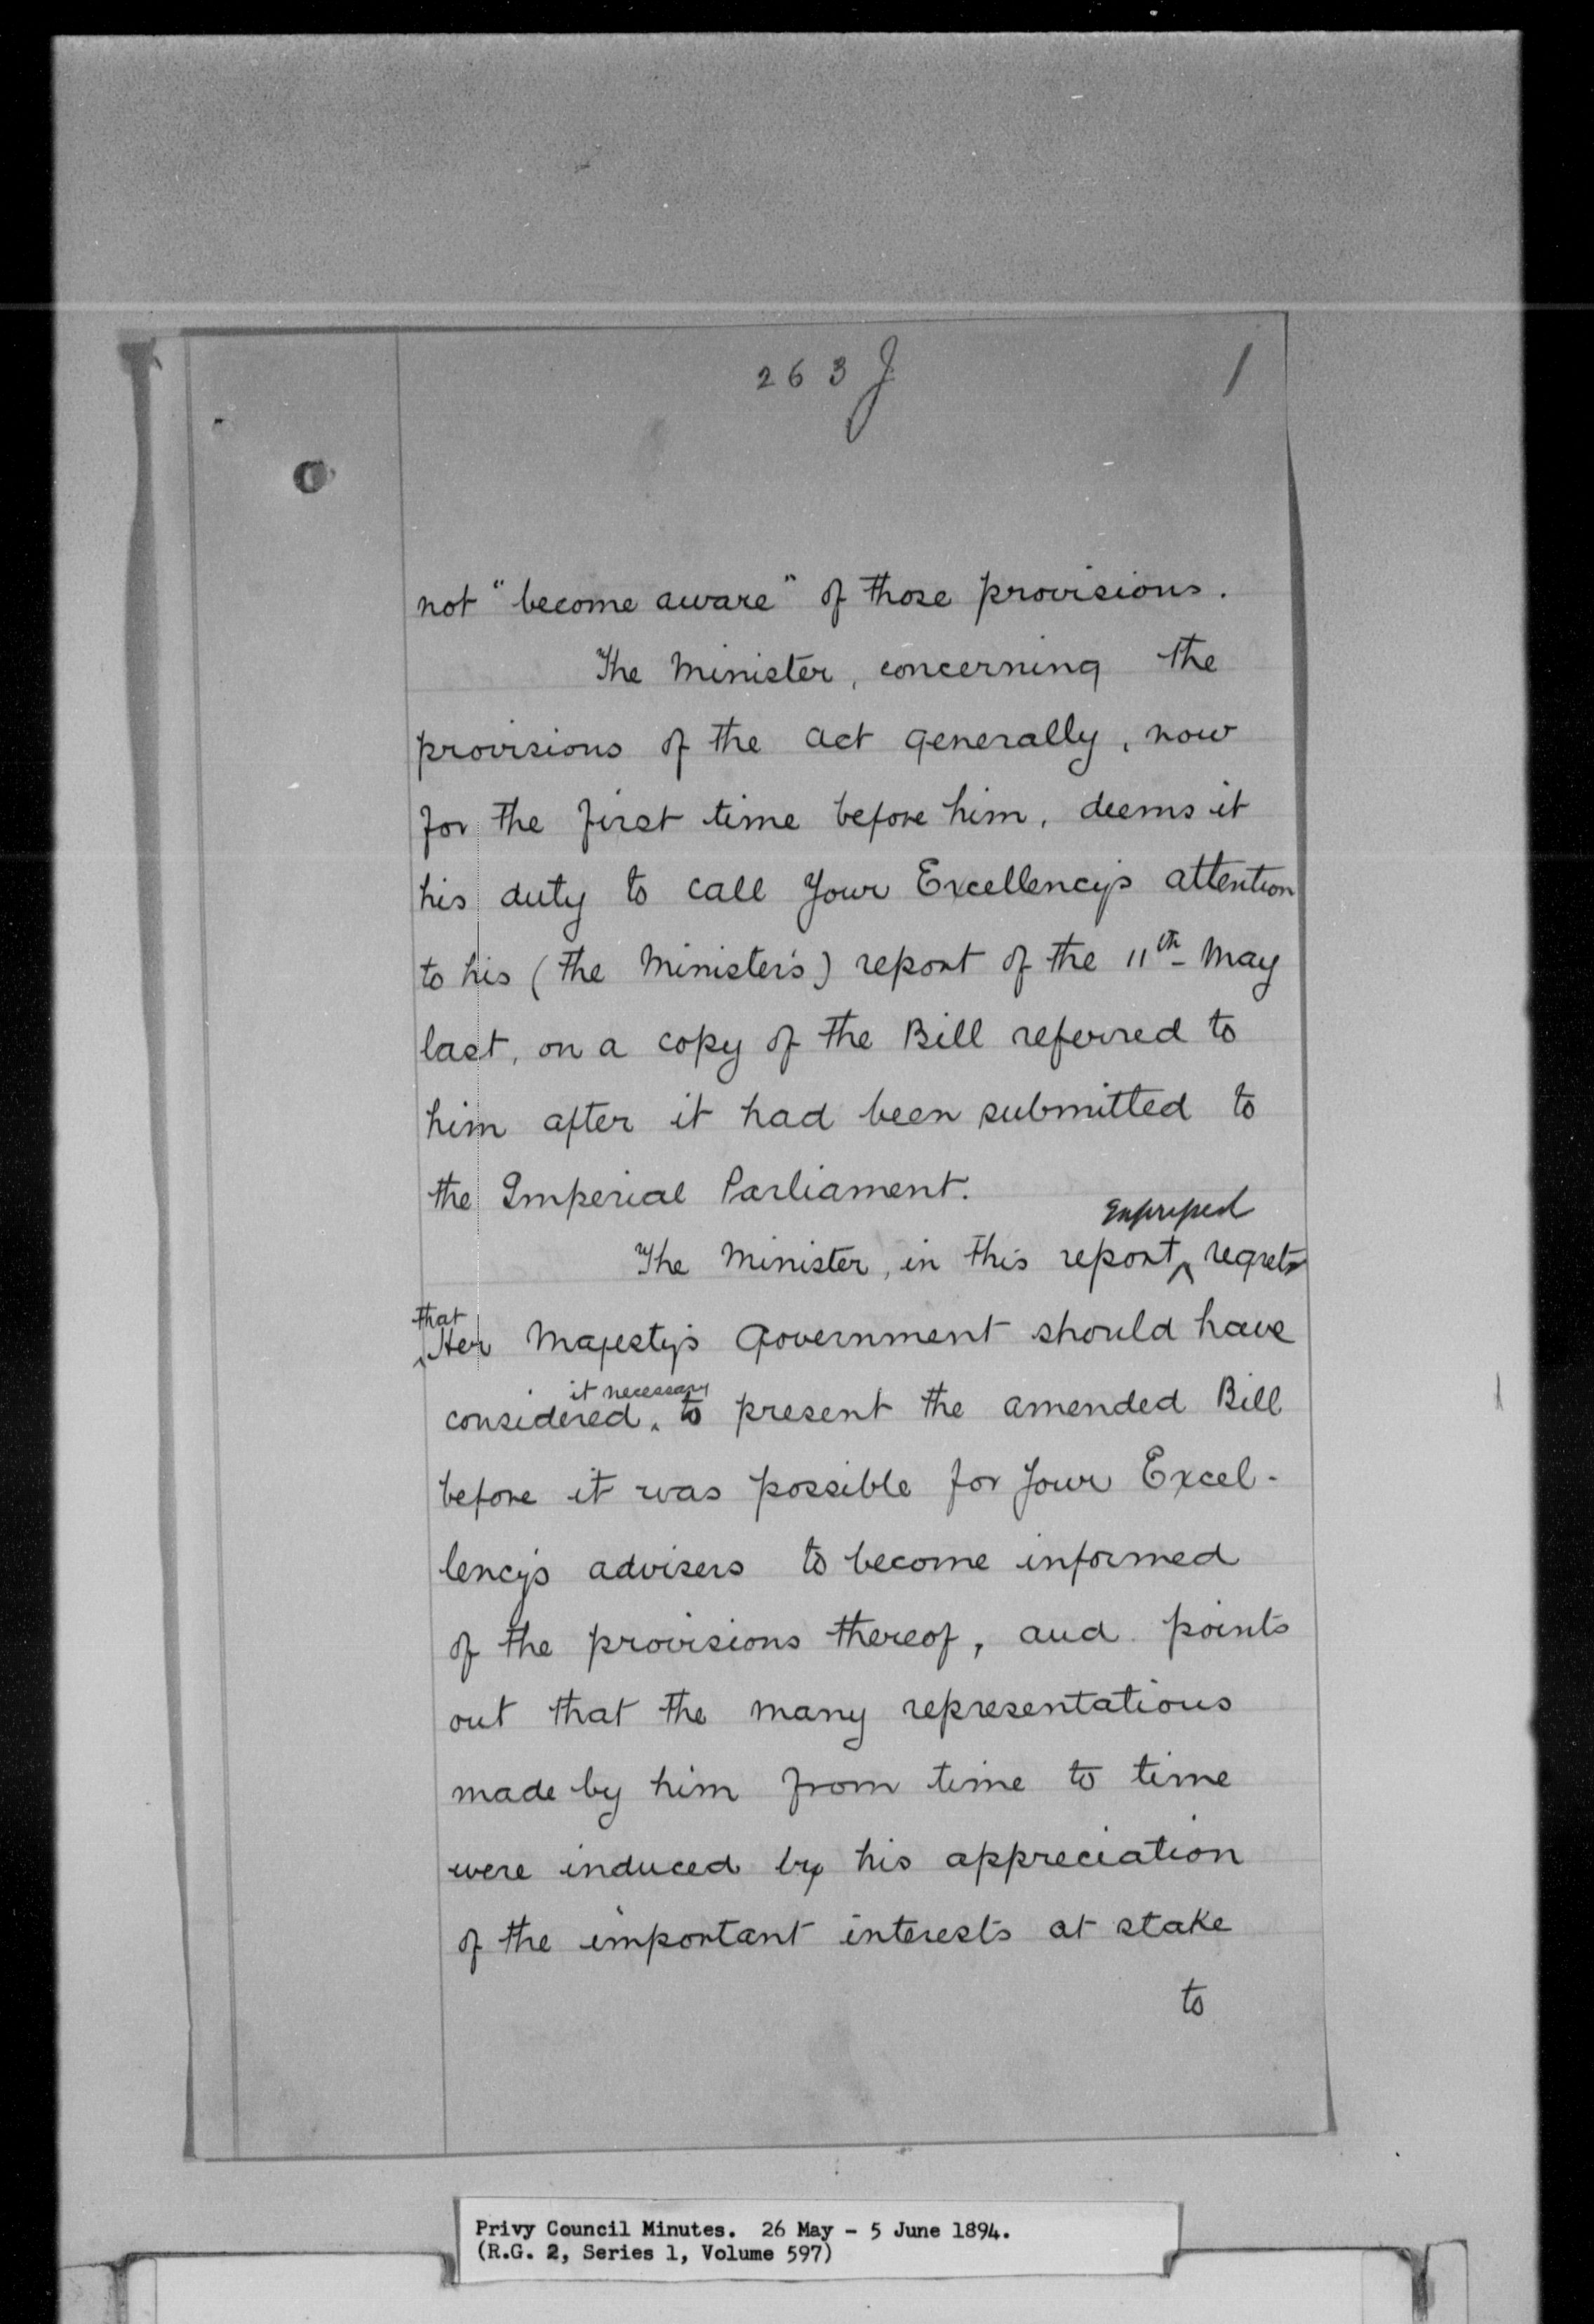 263 J
1
not "become aware" of those provisions.
The Minister, concerning the
provisions of the act generally, now
for the first time before him, deems it
his duty to call Your Excellency's attention
to his (the Minister's) report of the 11th May
last, on a copy of the Bill referred to
him after it had been submitted to
the Imperial Parliament.
expressed
The Minister, in this report ^ regrets
that
^ Her Majesty's Government should have
it necessary
considered ^ to present the amended Bill
before it was possible for Your Excel-
lency's advisers to become informed
of the provisions thereof, and points
out that the many representations
made by him from time to time
were induced by his appreciation
of the important interests at stake
to
Privy Council Minutes. 26 May - 5 June 1894.
(R.G. 2, Series 1, Volume 597)